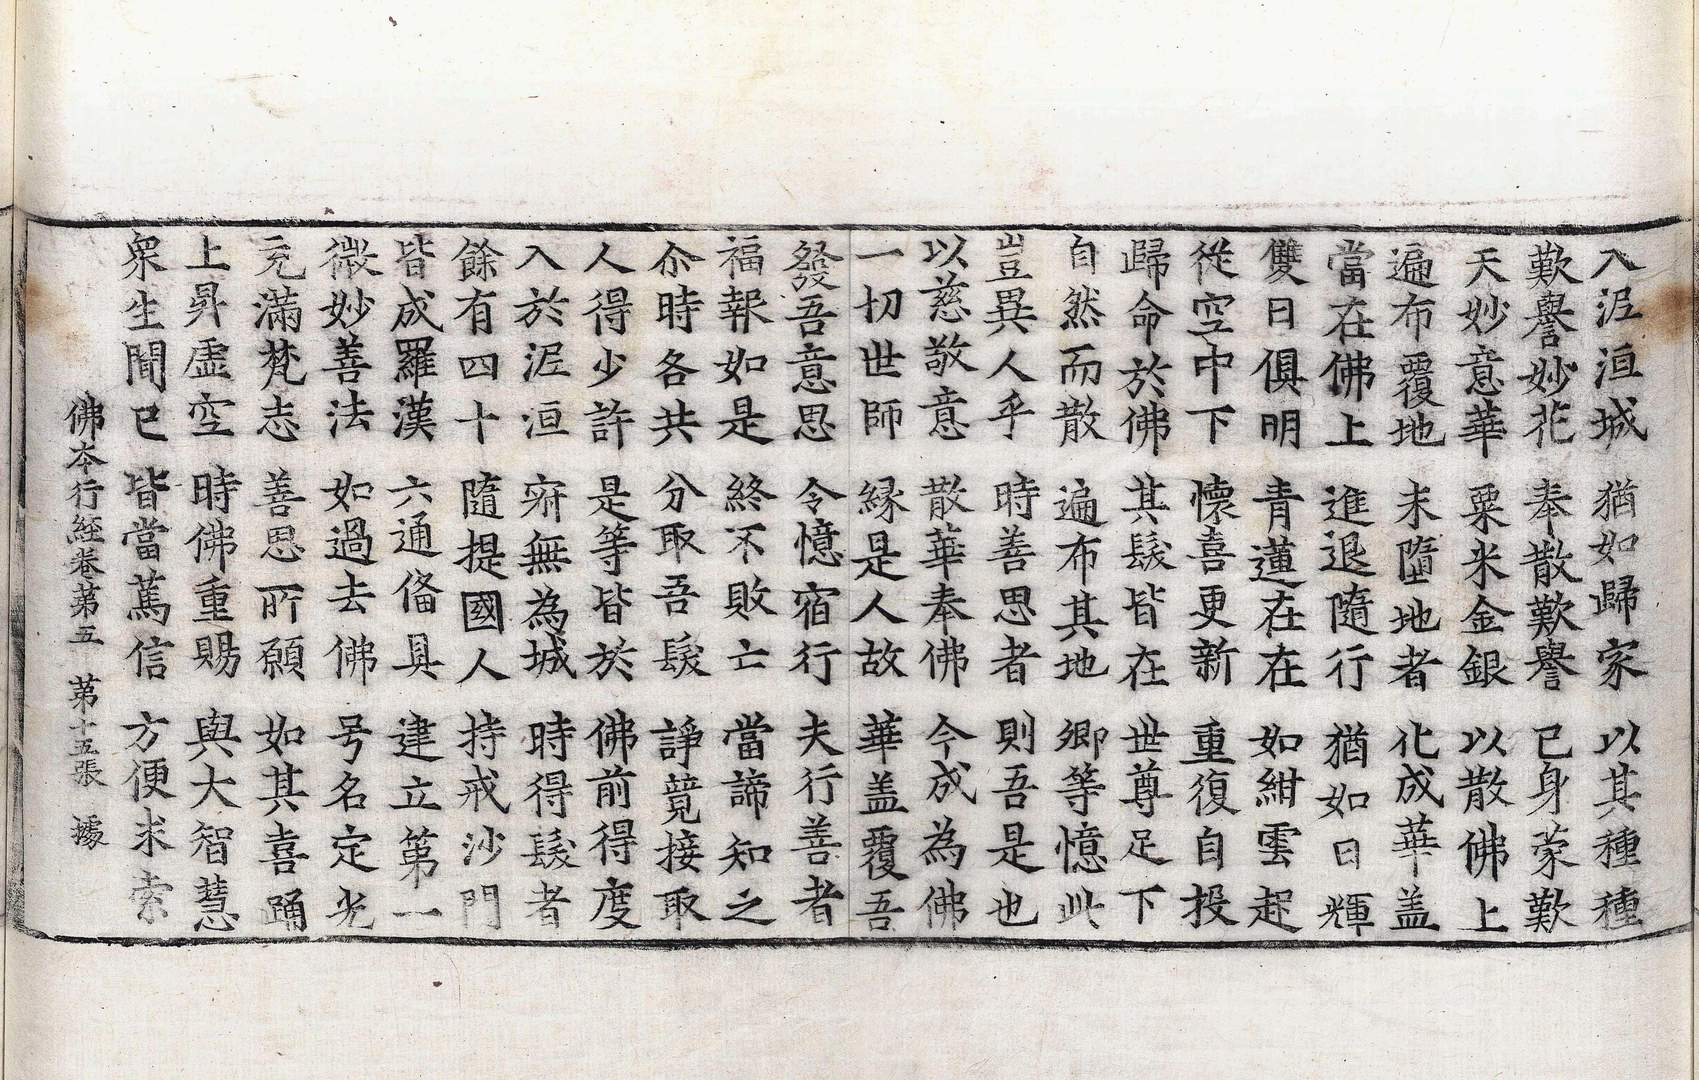 入泥洹城 猶如歸家 以其種種
歎譽妙花 奉散歎譽 已身蒙歎
天妙意華 粟米金銀 以散佛上
遍布覆地 未墮地者 化成華盖
當在佛上 進退隨行 猶如日輝
雙日俱明 青蓮在在 如紺雲起
從空中下 懷喜更新 重復自投
歸命於佛 其髮皆在 世尊足下
自然而散 遍布其地 卿等憶此
豈異人乎 時善思者 則吾是也
以慈敬意 散華奉佛 今成為佛
一切世師 縁是人故 華盖覆吾
發吾意思 令憶宿行 夫行善者
福報如是 終不敗亡 當諦知之
尒時各共 分取吾髮 諍競接取
人得少許 是等皆於 佛前得度
入於泥洹 㝛無為城 時得髮者
餘有四十 隨提國人 持戒沙門
皆成羅漢 六通俻具 建立第一
微妙善法 如過去佛 号名定光
充滿梵志 善思所願 如其喜踊
上昇虛空 時佛重賜 與大智慧
衆生聞已 皆當篤信 方便求索
佛夲行經卷第五 第十五張 據